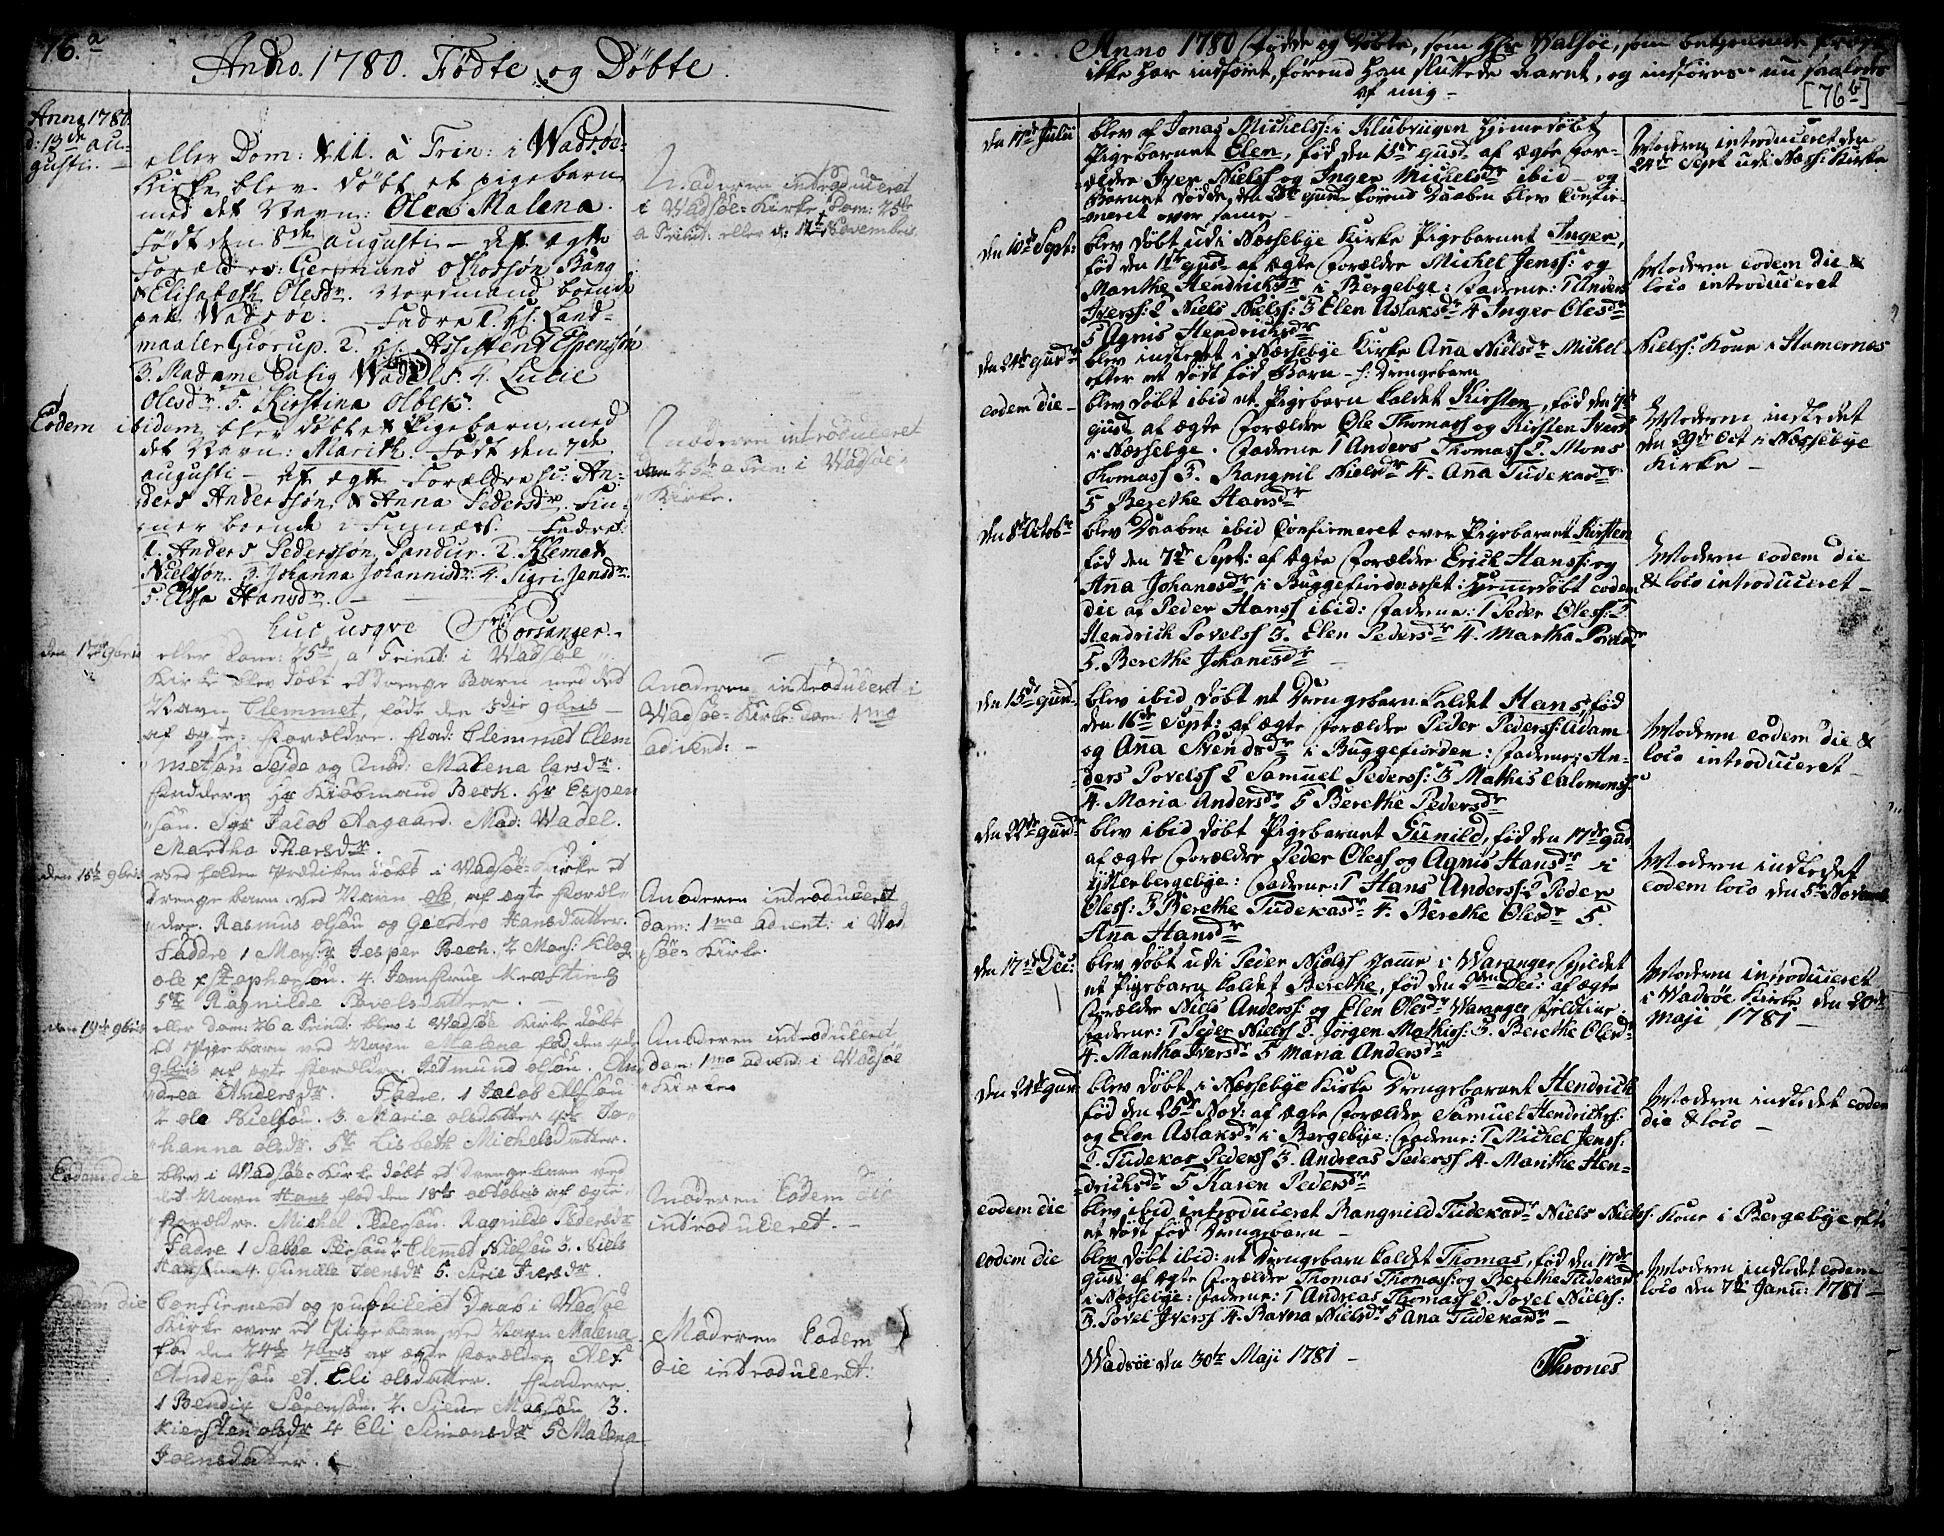 76.a
Anno. 1780. Fødte og Døbte.
Anno 1780
d: 13de au-
gusti.
eller Dom: XII. à Trin: i Wadsøe
Kirke blev døbt et pigebarn
med det Navn: Olea Malena.
Født den 8de augusti – Af ægte
Forældre: Germund Olessøn Bang
& Elisabeth Olesdr. Nordmand boende
paa Wadsøe. Fadre 1. Hr. Land-
maaler Giørup. 2. Hr. Assistent Espensøn
3. Madame Wadels. 4. Lucie
Olesdr. 5. Kirstina Olbek.
Moderen introduceret
i Wadsøe-Kirke Dom: 25de
a Trinit. eller d: 12t Novembris.
Eodem
ibidem, blev døbt et Pigebarn, med
det Navn: Marith. Født den 7de
augusti – Af ægte Forældre: An-
ders Anderssøn, & Anna Pedersdr. Fin-
ner boende i Finnæs. Fadre:
1. Anders Pederssøn, 2. Klemet
Nielssøn. 3. Johanna Johannisdr. 4. Sigri Jensdr.
5. Elsa Hansdr.
huc usque Porsanger.
Moderen introduceret
Dom 25de a Trin: i Wadsøe-
Kirke.
den 12te 9bris
eller Dom: 25de a Trinit: i Wadsøe
Kirke blev døbt et Drenge Barn med det
Navn Clemmet, føde den 3die 9bris
af ægte-Forældre. Clemmet Clem
metsøn og Malena Larsdr.
Faddere Hr Kiøbmand Beck. Hr Espen
søn. Sgr Jacob Aagaard. Mad: Wadel.
Martha
Moderen introduceret i
Wadsøe-Kirke dom: 1ma
advent: –
den 15de 9bris
ved holden Prædiken døbt i Wadsøe-Kirke et
Drenge barn ved Navn Ole af ægte Foræl-
dre. Rasmus Olsøn og Geertro Hansdatter.
Faddre 1 Jesper Beck. 2 Mons: Klog
4. Jomfrue
5te Ragnilde Povelsdatter.
Moderen introduceret
dom: 1ma advent: i Wad
søe Kirke.
den 19de 9bris
eller Dom: 26 a Trinit: blev i Wadsøe Kirke døbt
et Pige barn ved Navn Malena fød den 4de
9bris af ægte Forældre. Jetmund Olsøn. An
drea Andersdr. Fadre. 1 Jacob
2 Ole Nielsøn. 3. Maria Olsdatter 4de Jo-
hanna Olsdr. 5te Lisbeth Michelsdatter.
Moderen introduceret
dom: 1ma advent: i Wadsøe
Kirke
Eodem die
blev i Wadsøe-Kirke døbt et Drenge barn ved
det Navn Hans fød den 18de octobris af ægte
Forældre. Michel Pedersøn. Ragnilde Pedersdr
Fadre 1 2 Clemet Nielsøn 3. Niels
Hansen 4. Gunille 5. Sirie Iversdr.
Moderen Eodem die
introduceret. –
Eodem die
Confirmeret og publiceret Daab i Wadsøe
Kirke over et Pige barn ved Navn Malena
fød den 24de 7bris af ægte Forældre
Andersøn et. Eli Olsdatter. Fadere
1 Bendix Sørensøn. 2. 3.
Kiersten Olsdr 4 Eli Simonsdr 5 Malena
Joensdatter.
Moderen Eodem
die introduceret:
Anno 1780 Fødde og Døbte, som Hr Walsøe, som betienende Præst
ikke har indført, førend han sluttede Aaret, og indføres nu saaledes
af mig –
[76b]
den 17de Julii
blev af Jonas Michelss: i Klubvigen hjemedøbt
Pigebarnet Elen, fød den 15de ejusd: af ægte For-
ældre Iver Nielss og Inger Michelsdr ibid – og
Barnet døde den ejusd: førend Daaben blev Confir-
meret over samme –
Moderen introduceret den
24de Sept udi Næsse: Kirke
den 10de Sept:
blev døbt udi Næssebye Kirke Pigebarnet Inger,
fød den 1ste ejusd: af ægte Forældre Michel Jenss: og
Marithe Hendrichsdr i Bergebye: Fadderne: 1 Anders
Iverss: 2 Niels Nielss: 3 Elen Aslaksdr 4 Inger Olesdr
5 Agnis Hendrichsdr
Moderen eodem die &
loco introduceret
den 24de ejusd:
blev indledet i Næssebye Kirke Anna Nielsdr Michel Nielss: Kone i Hamernes
efter et dødt fød Barn – s: Drengebarn
eodem die –
blev døbt ibid et Pigebarn kaldet Kirsten, fød den 7de
ejusd: af ægte Forældre Ole Thomass og Kirsten Iversdr
i Næssebye. Fadderne 1 Anders Thomass 2. Mons
Thomass 3. Rangnil Nielsdr 4. Anna Tudekardr
5 Berethe Hansdr
Moderen indledet
den 29de Oct i Næssebye
Kirke –
den 8de Octobr
blev Daaben ibid Confirmeret over Pigebarnet Kirsten
fød den 7de Sept: af ægte Forældre Erich Hanss: og
Anna Johanesdr i Buggefiordnæsset: hjemmedøbt eodem
die af Peder Hanss ibid: Fadderne: 1 Peder Oless: 2
Hendrich Povelss 3. Elen Pedersdr 4. Martha Povelsdr
5. Berethe Johanesdr –
Moderen eodem die
& loco introduceret –
den 15de ejusd:
blev ibid døbt et Drengebarn kaldet Hans, fød
den 16de Sept: af ægte Forældre Peder Pederss: Adam
og Anna Svendsdr i Buggefiorden: Fadderne: 1 An-
ders Povelss 2 Samuel Pederss: 3 Mathis Salomonss:
4. Maria Andersdr 5 Berethe Pedersdr
Moderen eodem die &
loco introduceret –
den 22de ejusd:
blev ibid døbt Pigebarnet Gunild, fød den 17de ejusd
af ægte Forældre Peder Oless og Agnis Hansdr i
Ytterbergebye: Fadderne: 1 Hans Anderss: 2 Peder
Oless: 3 Berethe Tudekasdr 4. Berethe Olesdr 5.
Anna Hansdr
Moderen indledet
eodem loco den 5te Novemb.
den 17de Dec:
blev døbt udi Peder Nielss Gamme i Waranger Fieldet
et Pigebarn kaldet Berethe, fød den Dec: af ægte
Forældre Niels Anderss: og Elen Olesdr Waranger Fieldfine:
Fadderne: 1 Peder Nielss 2. Jørgen Mathiss: 3. Berethe Olesdr
4. Martha Iversdr 5 Maria Andersdr
Moderen introduceret
i Wadsøe Kirke den 20de
Maji 1781 –
den 24de ejusd:
blev døbt i Næssebye Kirke Drengebarnet Hendrich
fød den 25de Nov: af ægte Forældre Samuel Hendrichss:
og Elen Aslaksdr i Bergebye: Fadderne: 1 Michel Jenss:
2. Tudekar Pederss 3. Andreas Pederss 4. Marithe Hen-
drichsdr 5 Karen Pedersdr
Moderen indledet eodem
die & loco –
eodem die
blev ibid introduceret Rangnild Tudekardr Niels Nielss: Kone i Bergebye efter
et dødt fød Drengebarn –
eodem die
blev døbt ibid: et Drengebarn kaldet Thomas, fød den 17de
ejusd: af ægte Forældre Thomas Thomass: og Berethe Tudekardr
i Næssebye: Fadderne: 1 Andreas Thomass 2. Povel Nielss:
3. Povel Iverss 4. Ravna Nielsdr 5 Ana Tudekardr –
Moderen indledet eodem
loco den 7de Janu: 1781 –
Wadsøe den 30te Maji 1781 –
Thrones